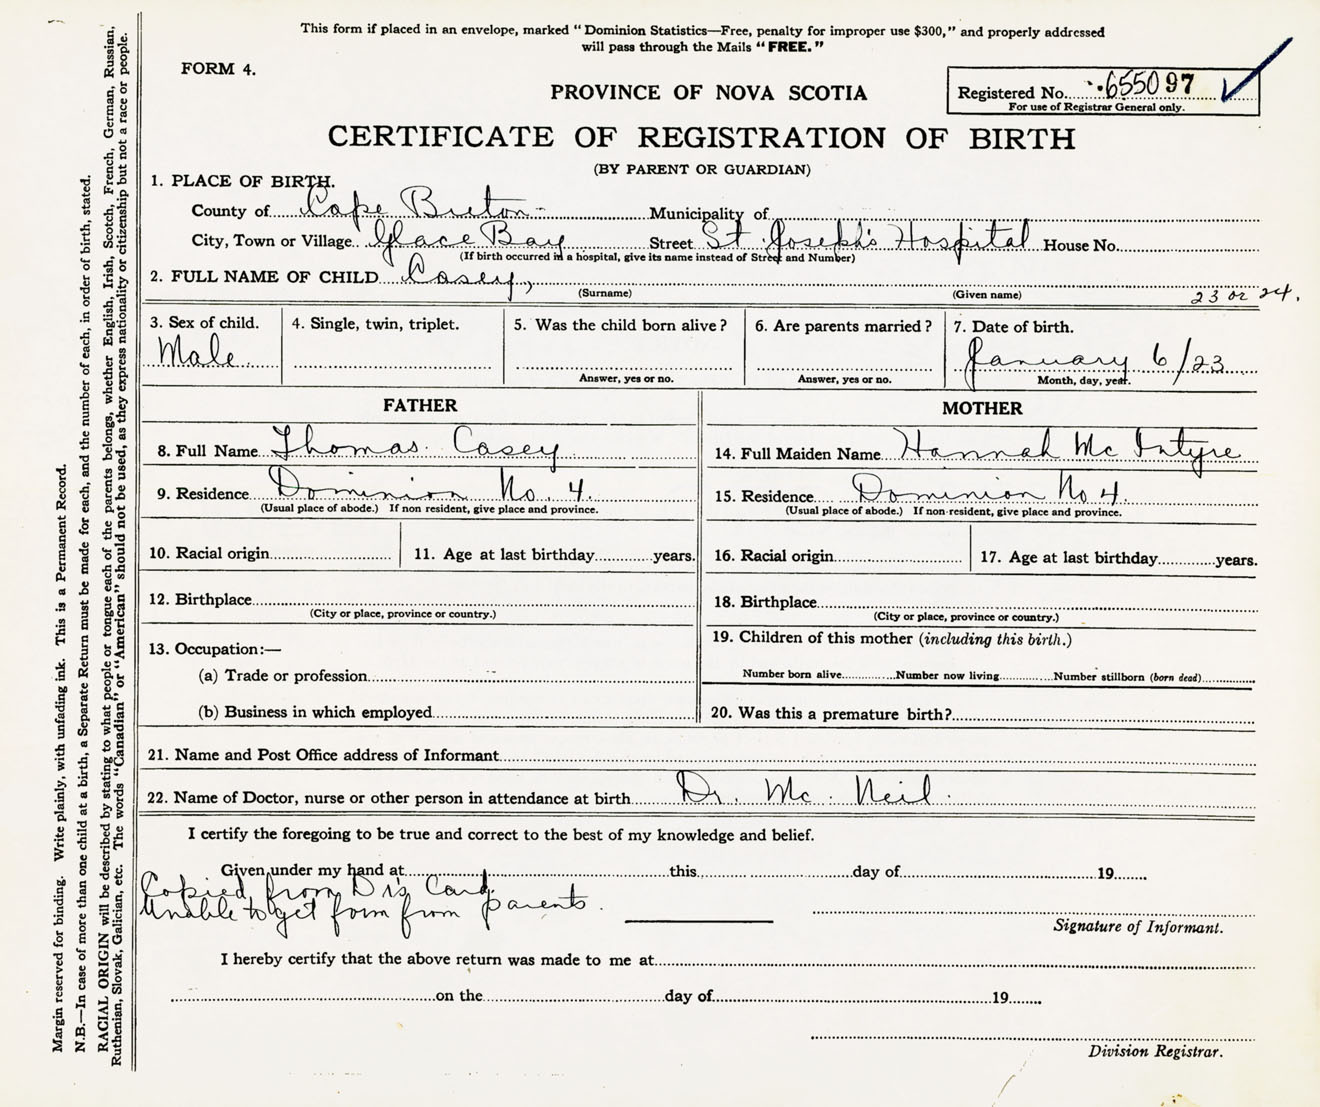 This form if placed in an envelope, marked "Dominion Statistics—Free, penalty for improper use $300," and properly addressed
will pass through the Mails "FREE."
FORM 4.
PROVINCE OF NOVA SCOTIA
Registered No. 655097
For use of Registrar General only.
CERTIFICATE OF REGISTRATION OF BIRTH
(BY PARENT OR GUARDIAN)
1. PLACE OF BIRTH.
County of Cape Breton Municipality of
City, Town or Village Glace Bay Street St. Joseph's Hospital House No.
(If birth occurred in a hospital, give its name instead of Street and Number)
2. FULL NAME OF CHILD Casey,
(Surname) (Given name) 23 or 24.
3. Sex of child. 4. Single, twin, triplet. 5. Was the child born alive? 6. Are parents married? 7. Date of birth.
Male. January 6/23
Answer, yes or no. Answer, yes or no. Month, day, year.
FATHER MOTHER
8. Full Name Thomas Casey 14. Full Maiden Name Hannah Mc Intyre
9. Residence Dominion No. 4. 15. Residence Dominion No 4.
(Usual place of abode.) If non resident, give place and province. (Usual place of abode.) If non-resident, give place and province.
10. Racial origin 11. Age at last birthday years. 16. Racial origin 17. Age at last birthday years.
12. Birthplace 18. Birthplace
(City or place, province or country.) (City or place, province or country.)
13. Occupation:— 19. Children of this mother (including this birth.)
(a) Trade or profession Number born alive Number now living Number stillborn (born dead)
(b) Business in which employed 20. Was this a premature birth?
21. Name and Post Office address of Informant
22. Name of Doctor, nurse or other person in attendance at birth Dr. Mc Neil.
I certify the foregoing to be true and correct to the best of my knowledge and belief.
Given under my hand at this day of 19
Copied from Dr's Card.
Unable to get form from parents.
Signature of Informant.
I hereby certify that the above return was made to me at
on the day of 19
Division Registrar.
Margin reserved for binding. Write plainly, with unfading ink. This is a Permanent Record.
N.B.—In case of more than one child at a birth, a Separate Return must be made for each, and the number of each, in order of birth, stated.
RACIAL ORIGIN will be described by stating to what people or tongue each of the parents belongs, whether English, Irish, Scotch, French, German, Russian,
Ruthenian, Slovak, Galician, etc. The words "Canadian" or "American" should not be used, as they express nationality or citizenship but not a race or people.